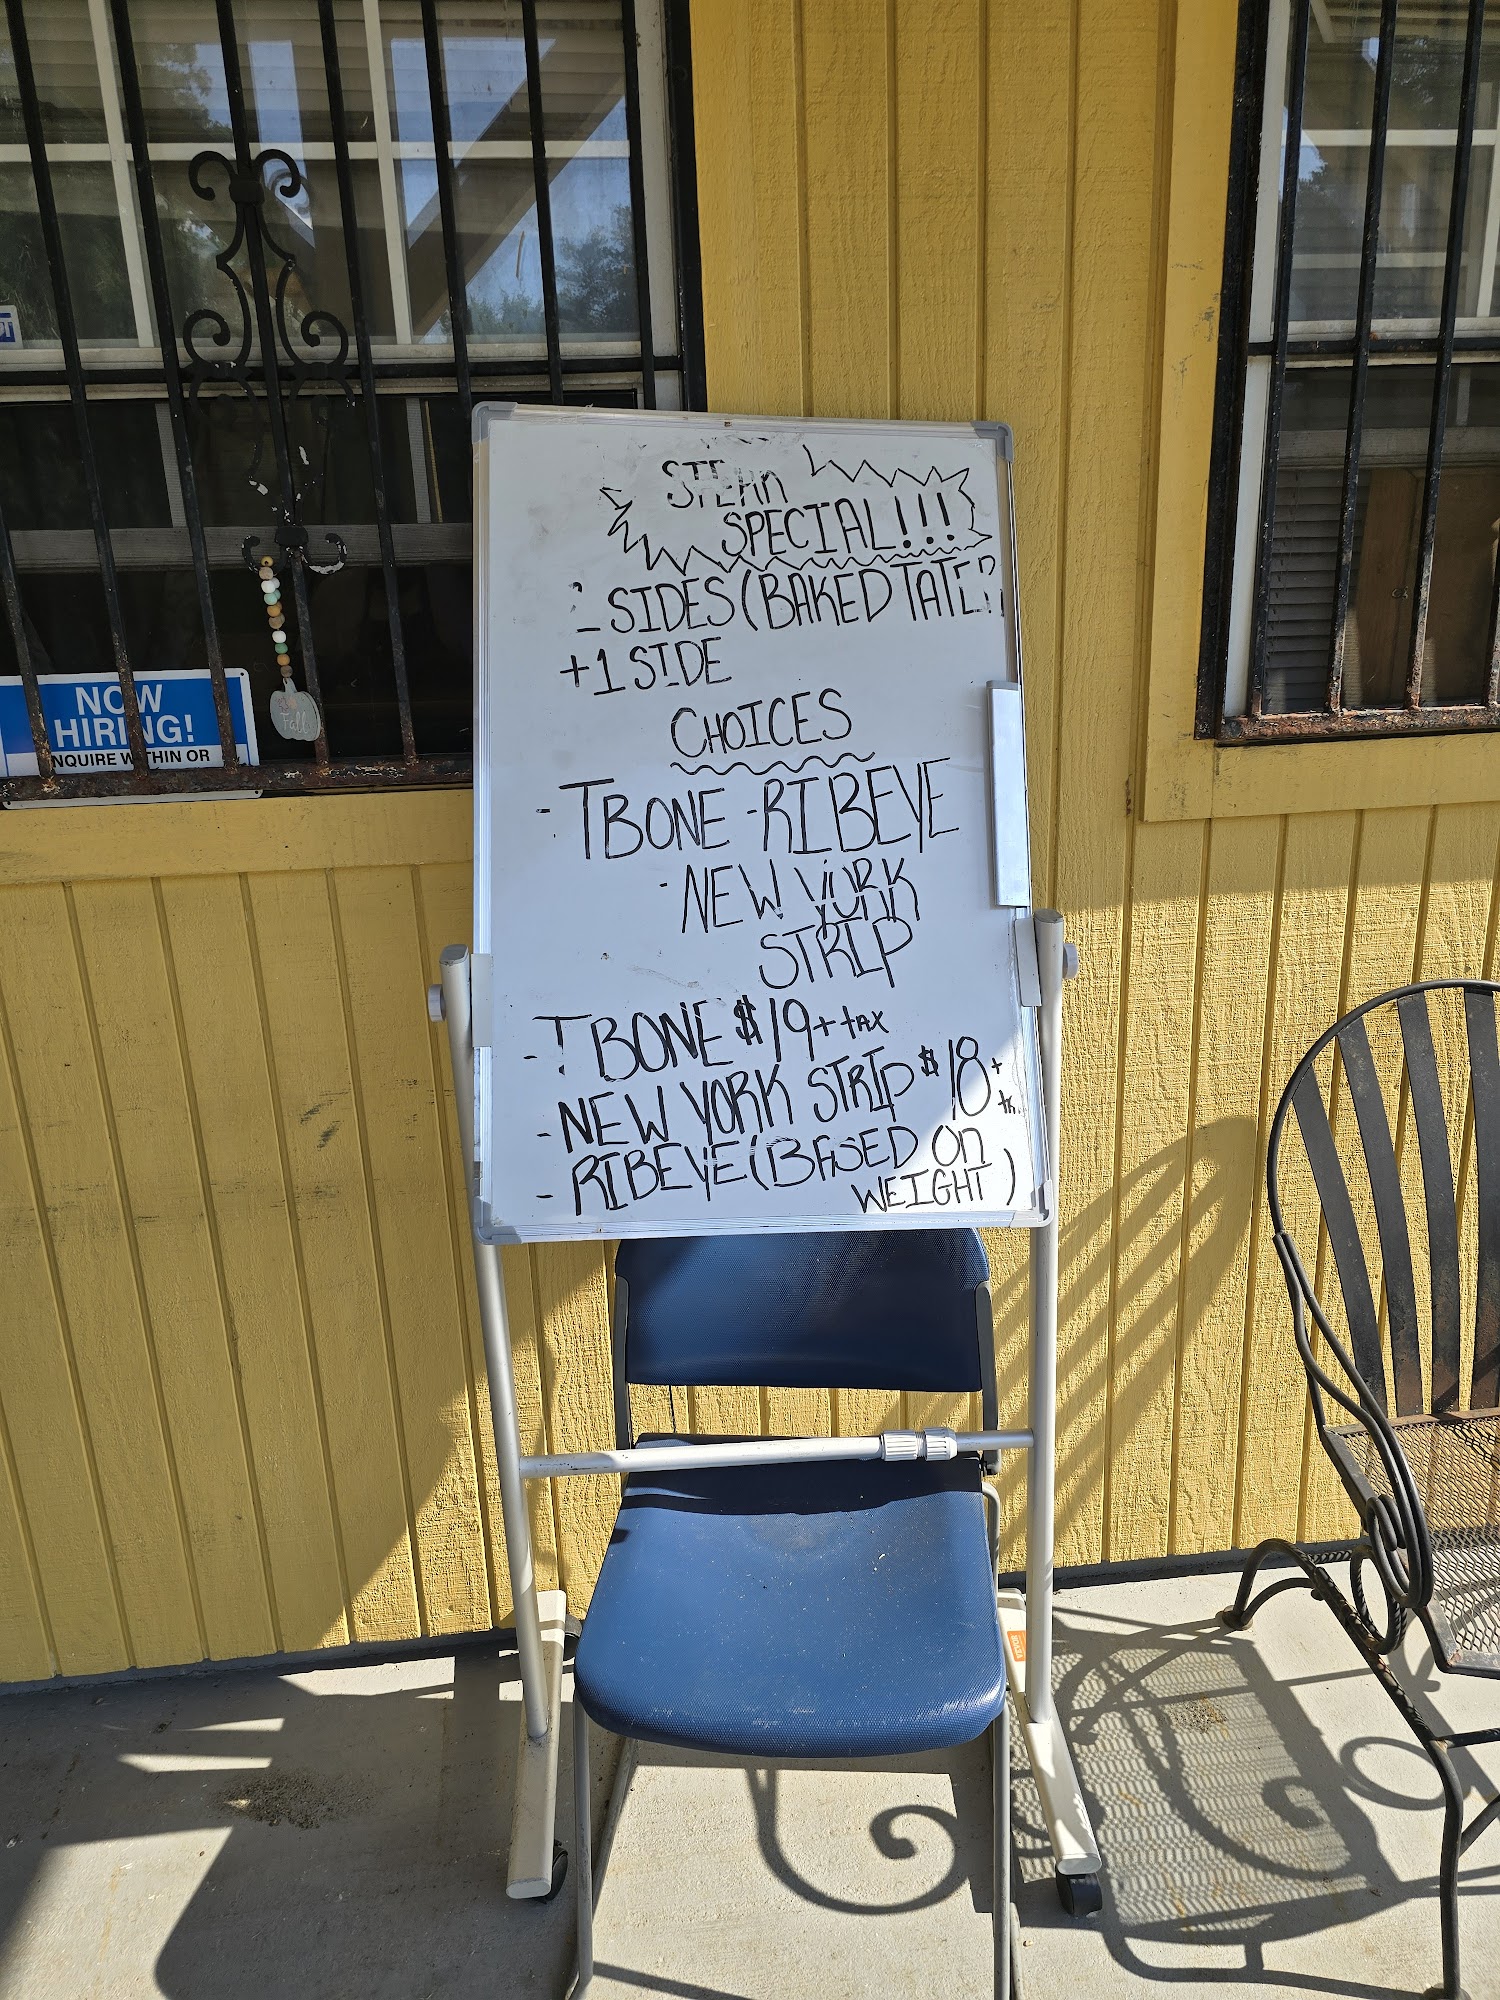 STEAK
SPECIAL!!!
SIDES (BAKED TATER
+1 SIDE
CHOICES
- TBONE -RIBEYE
-NEW YORK
STRIP
- TBONE $19 + tax
- NEW YORK STRIP $18 +
- RIBEYE (BASED On
WEIGHT)
NOW
HIRING!
INQUIRE WITHIN OR
Fall